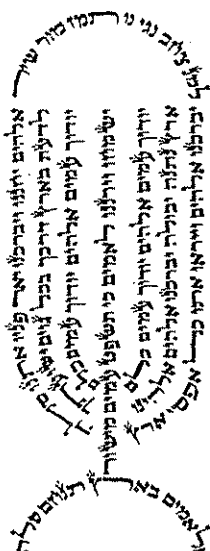 מזמור שיר
אלהים יחננו ויברכנו יאר פניו אתנו סלה
לדעת בארץ דרכך בכל גוים ישועתך
יודוך עמים אלהים יודוך עמים כלם
ישמחו וירננו לאמים כי תשפט עמים מישור
ולאמים בארץ תנחם סלה
יודוך עמים אלהים יודוך עמים כלם
ארץ נתנה יבולה יברכנו אלהים אלהינו
יברכנו אלהים וייראו אותו כל אפסי ארץ